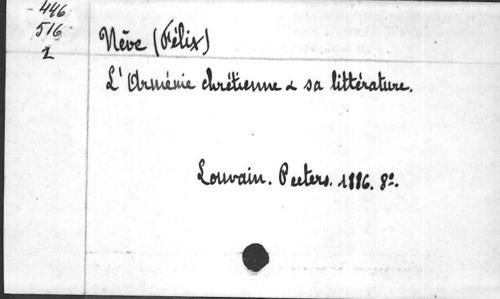 446
516
1
Nève (Félix)
L'Arménie chrétienne & sa littérature.
Louvain. Peeters. 1886. 8º.